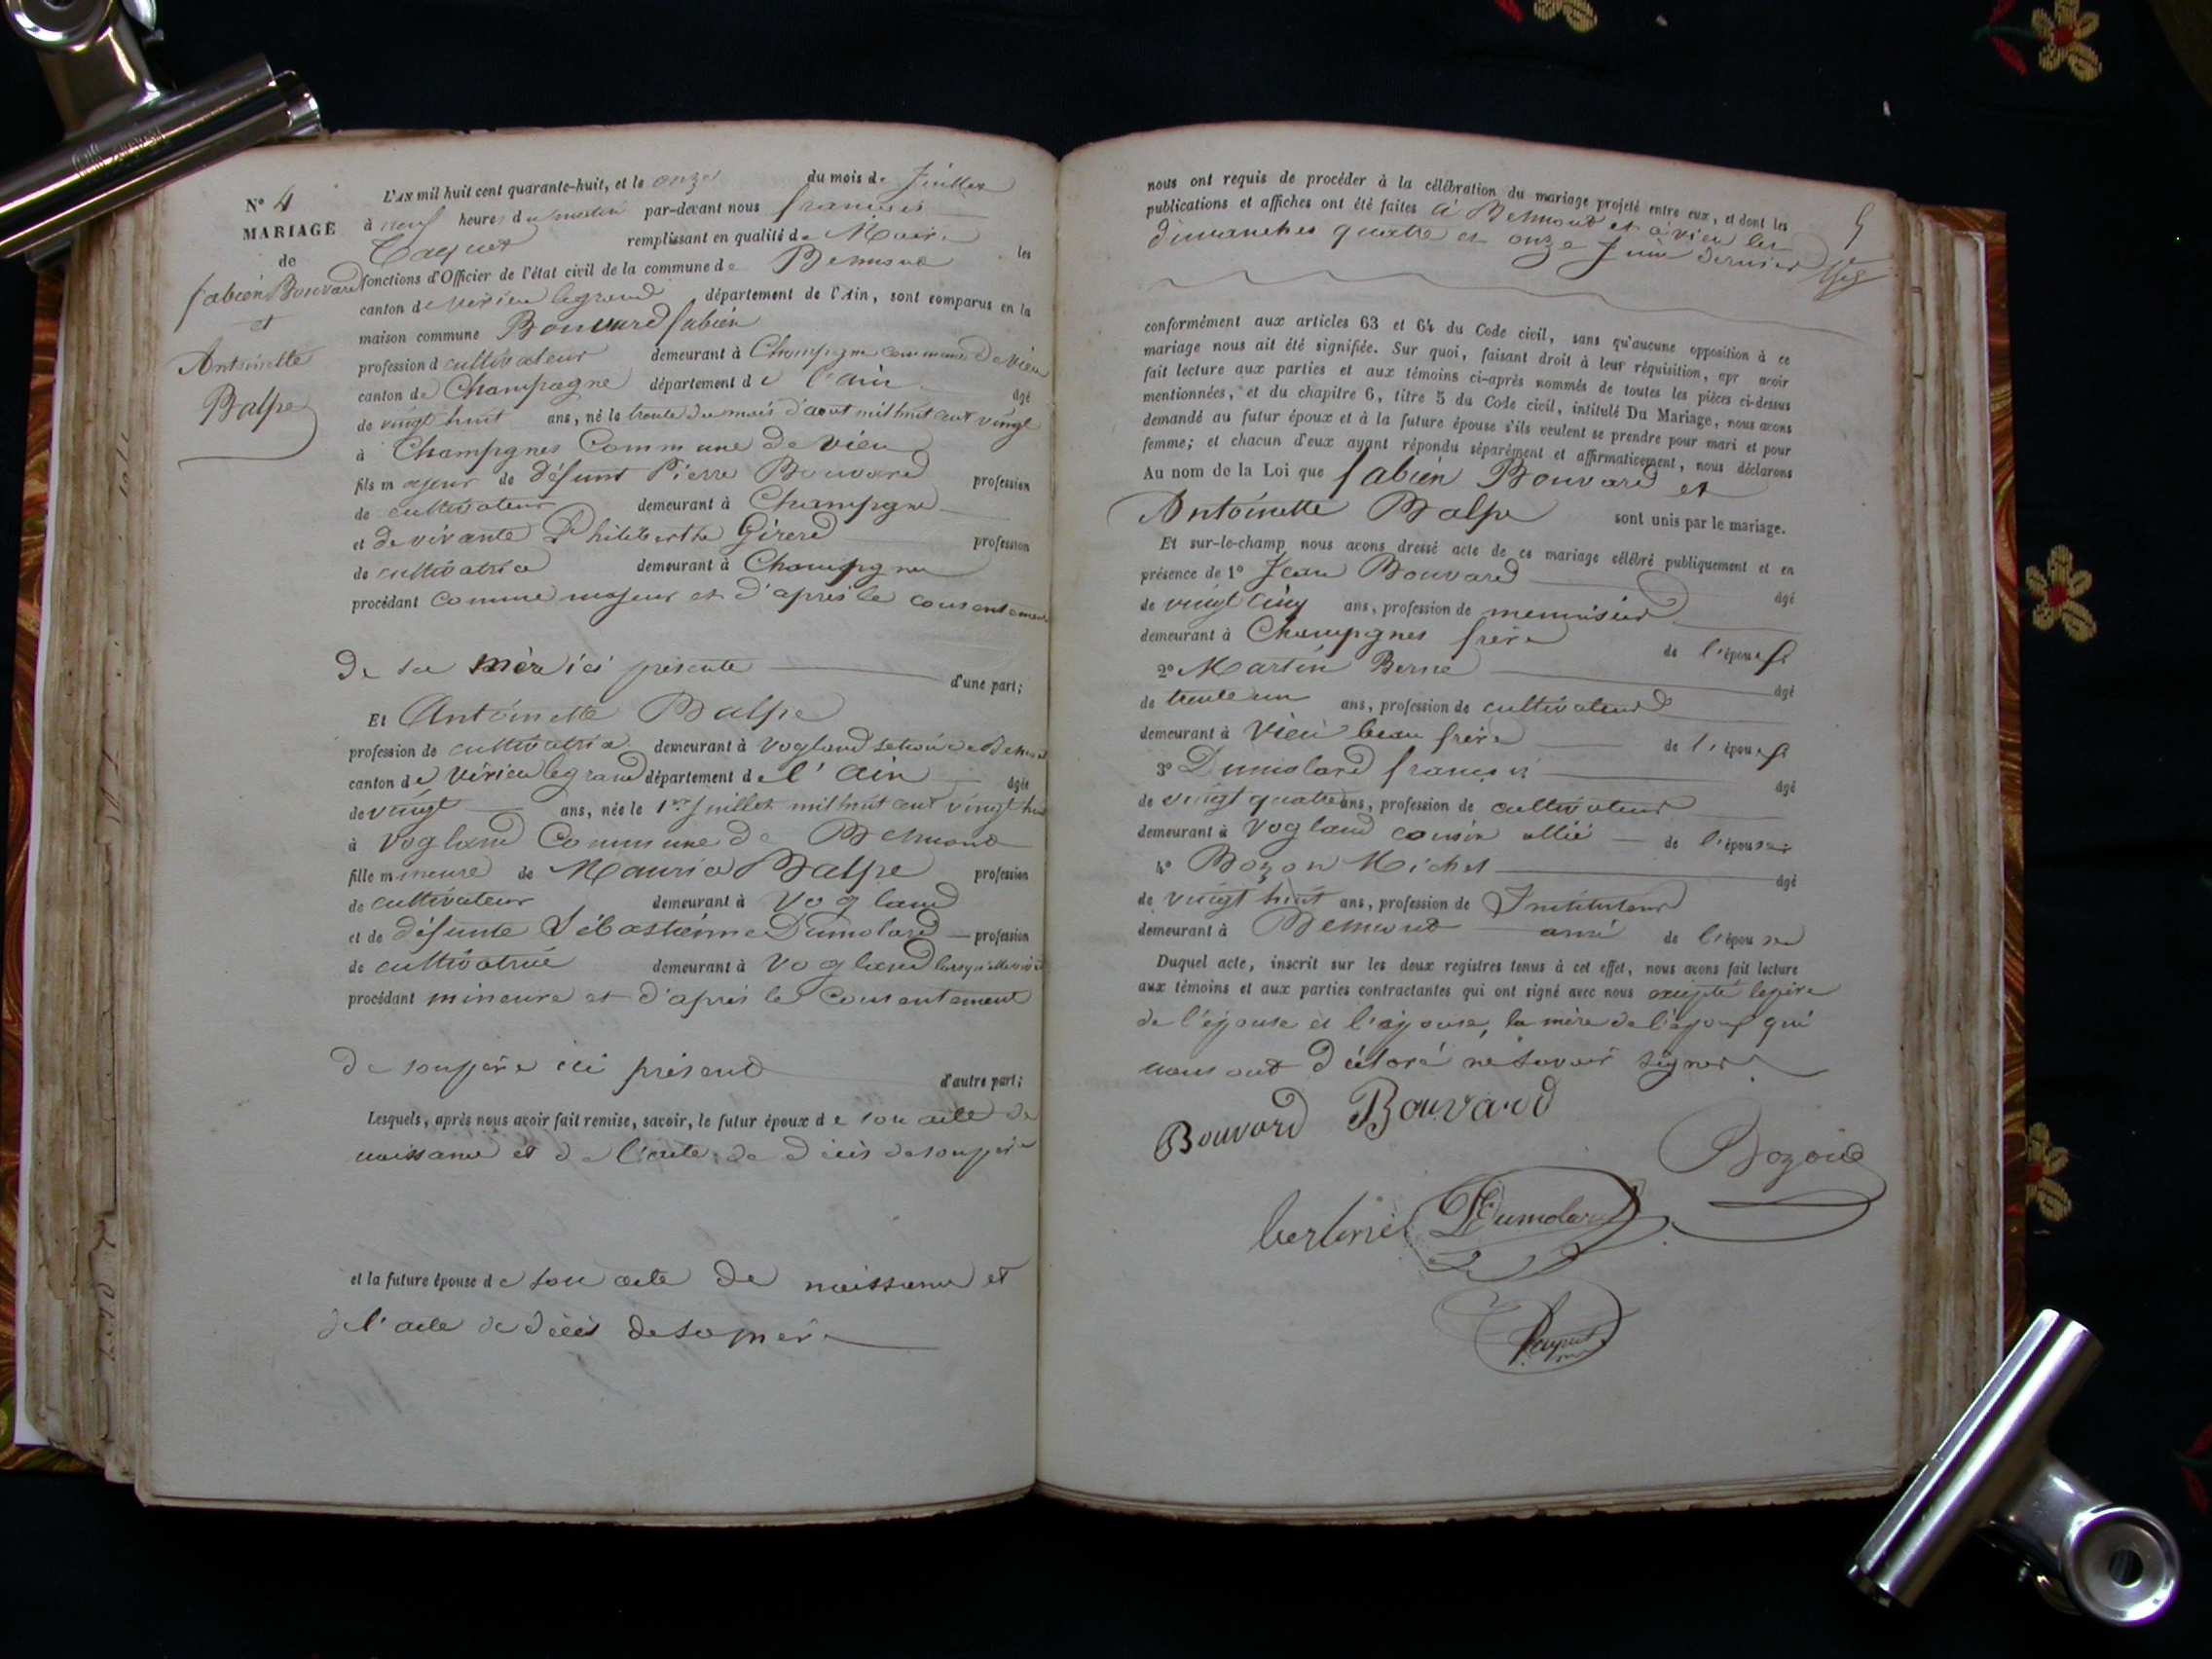 N° 4
MARIAGE
de
fabien Bouvard
et
Antoinette
Balpe
L'AN mil huit cent quarante-huit, et le onze du mois de Juillet
à neuf heures du matin par-devant nous francois
remplissant en qualité de Maire les
fonctions d'Officier de l'état civil de la commune de Belmont
canton de virieu legrand département de l'Ain, sont comparus en la
maison commune Bouvard fabien
profession d cultivateur demeurant à Champagne commune de vieu
canton de Champagne département de l'ain âgé
de vingt huit ans, né le trente du mois d'aout mil huit cent vingt
à Champagnes Commune de vieu
fils majeur de défunt Pierre Bouvard profession
de cultivateur demeurant à Champagne
et de vivante Philiberthe Girerd profession
de cultivatrice demeurant à Champagne
procédant comme majeur et d'après le consentement
de sa mère ici présente d'une part;
Et Antoinette Balpe
profession de cultivatrice demeurant à Vogland
canton de virieu legrand département de l'ain âgée
de vingt ans, née le 1er Juillet mil huit cent vingt huit
à Vogland Commune de Belmont
fille mineure de Maurice Balpe profession
de cultivateur demeurant à Vogland
et de défunte Sébastienne Dumolard profession
de cultivatrice demeurant à Vogland
procédant mineure et d'après le Consentement
de son père ici présent d'autre part;
Lesquels, après nous avoir fait remise, savoir, le futur époux de son acte de
naissance et de l'acte de décès de son père
et la future épouse de son acte de naissance et
de l'acte de décès de sa mère
nous ont requis de procéder à la célébration du mariage projeté entre eux, et dont les
publications et affiches ont été faites à Belmont et à vieu les
dimanches quatre et onze Juin dernier
5
conformément aux articles 63 et 64 du Code civil, sans qu'aucune opposition à ce
mariage nous ait été signifiée. Sur quoi, faisant droit à leur réquisition, apr avoir
fait lecture aux parties et aux témoins ci-après nommés de toutes les pièces ci-dessus
mentionnées, et du chapitre 6, titre 5 du Code civil, intitulé Du Mariage, nous avons
demandé au futur époux et à la future épouse s'ils veulent se prendre pour mari et pour
femme; et chacun d'eux ayant répondu séparément et affirmativement, nous déclarons
Au nom de la Loi que fabien Bouvard et
Antoinette Balpe sont unis par le mariage.
Et sur-le-champ nous avons dressé acte de ce mariage célébré publiquement et en
présence de 1° Jean Bouvard âgé
de vingt cinq ans, profession de menuisier
demeurant à Champagnes frère de l'époux
2° Martin Berne âgé
de trente un ans, profession de cultivateur
demeurant à Vieu beau frère de l'époux
3° Dumolard francois âgé
de vingt quatre ans, profession de cultivateur
demeurant à Vogland cousin allié de l'épouse
4° Bozon Michel âgé
de vingt huit ans, profession de Instituteur
demeurant à Belmont ami de l'épouse
Duquel acte, inscrit sur les deux registres tenus à cet effet, nous avons fait lecture
aux témoins et aux parties contractantes qui ont signé avec nous excepté le père
de l'épouse et l'épouse, la mère de l'époux qui
nous ont déclaré ne savoir signer
Bouvard Bouvard
Bozon
Dumolard